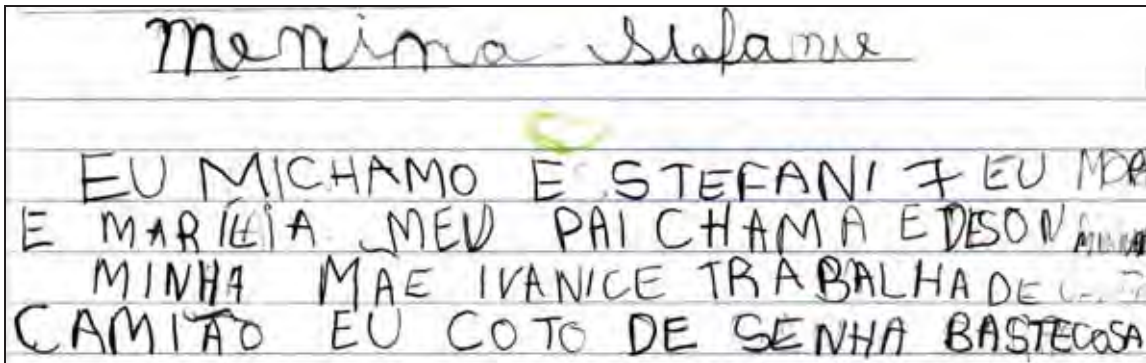 Menina Stefanie
EU MICHAMO E STEFANI 7 EU MOR
E MARILIA MEU PAI CHAMA EDISON
MINHA MAE IVANICE TRABALHA DE
CAMIÃO EU COTO DE SENHA BASTECOSA